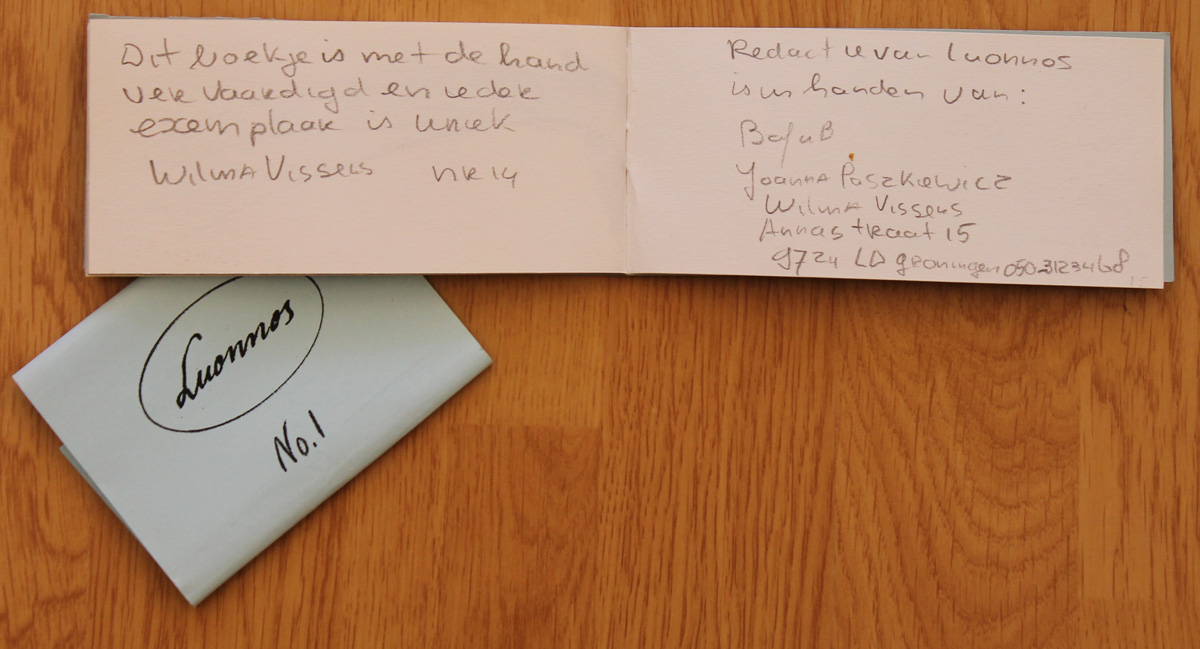 Dit boekje is met de hand
vervaardigd en ieder
exemplaar is uniek
Wilma Vissers nr 14
Redactie van Luonnos
is in handen van:
BafuB
Joanna Paszkiewicz
Wilma Vissers
Annastraat 15
9724 LD groningen 050-3123468
Luonnos
No. 1